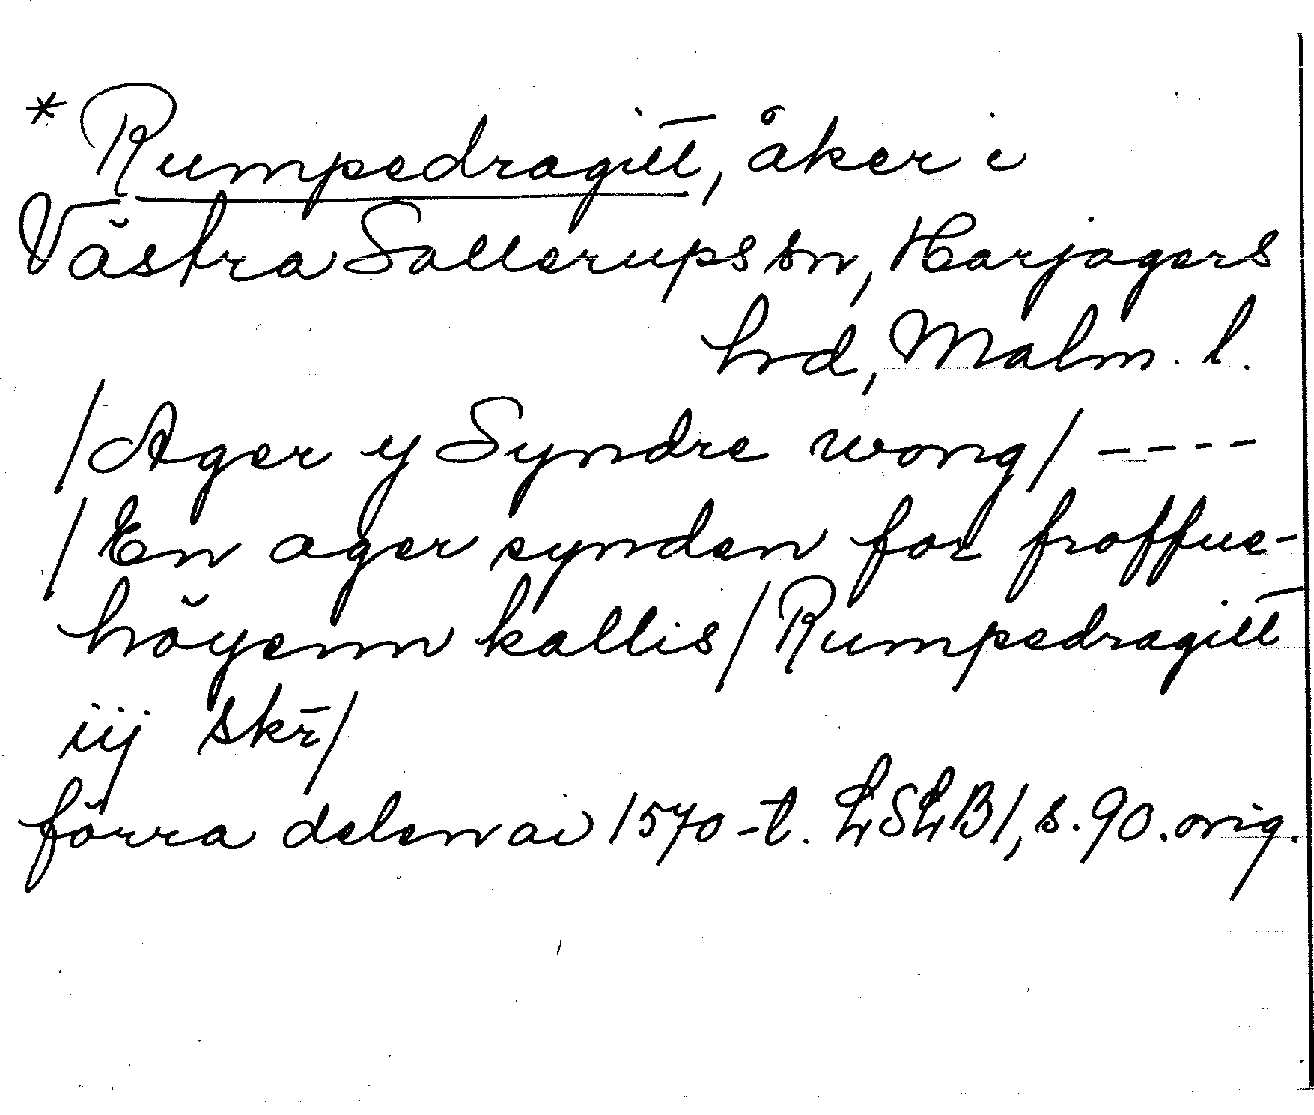 * Rumpedragitt, åker i
Västra Sallerups sn, Harjagers
hrd, Malm. l.
/Ager y Syndre wong/ ----
/En ager synden for froffue-
höyenn kallis/Rumpedragitt
iij skr̄/
förra delen av 1570-t. LSLB1, s. 90. orig.